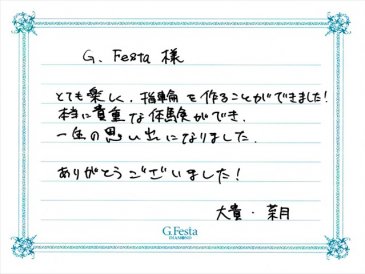 G. Festa 様
とても楽しく、指輪を作ることができました!
本当に貴重な体験ができ、
一生の思い出になりました。
ありがとうございました!
大貴・菜月
G.Festa
DIAMOND